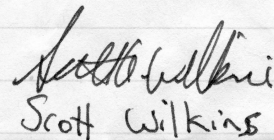 Scott Wilkins
Scott Wilkins